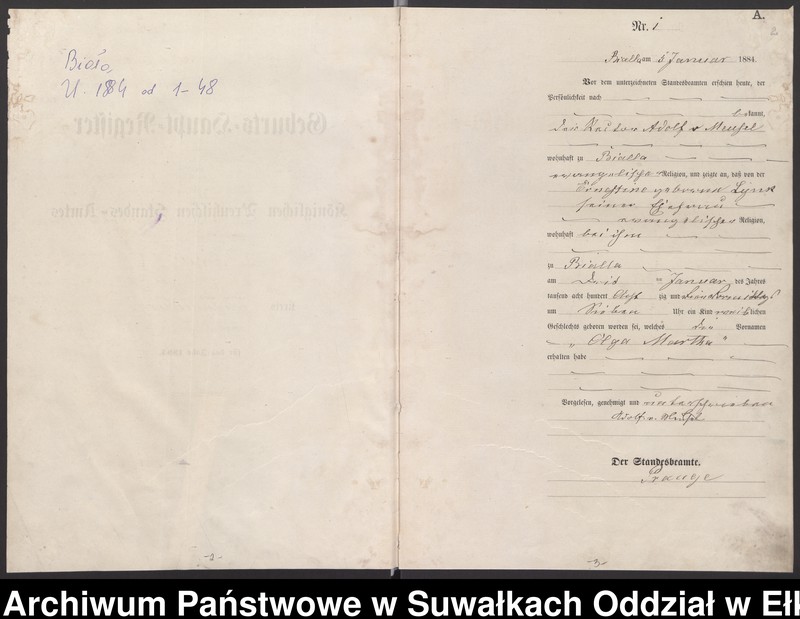 Biała
U. 1884 od 1-48
-2-
A.
2
Nr. 1
Bialla am 5 Januar 1884.
Vor dem unterzeichneten Standesbeamten erschien heute, der
Persönlichkeit nach
bekannt,
der Adolf v Meusel
wohnhaft zu Bialla
evangelischer Religion, und zeigte an, daß von der
Ernestine geborene Lynk
seiner Ehefrau
evangelischer Religion,
wohnhaft bei ihm
zu Bialla
am Januar des Jahres
tausend acht hundert acht zig und vier Vormittags
um Sieben Uhr ein Kind weiblichen
Geschlechts geboren worden sei, welches die Vornamen
„Olga Martha"
erhalten habe
Vorgelesen, genehmigt und unterschrieben
Adolf v. Meusel
Der Standesbeamte.
Prange
-3-
Archiwum Państwowe w Suwałkach Oddział w Ełk